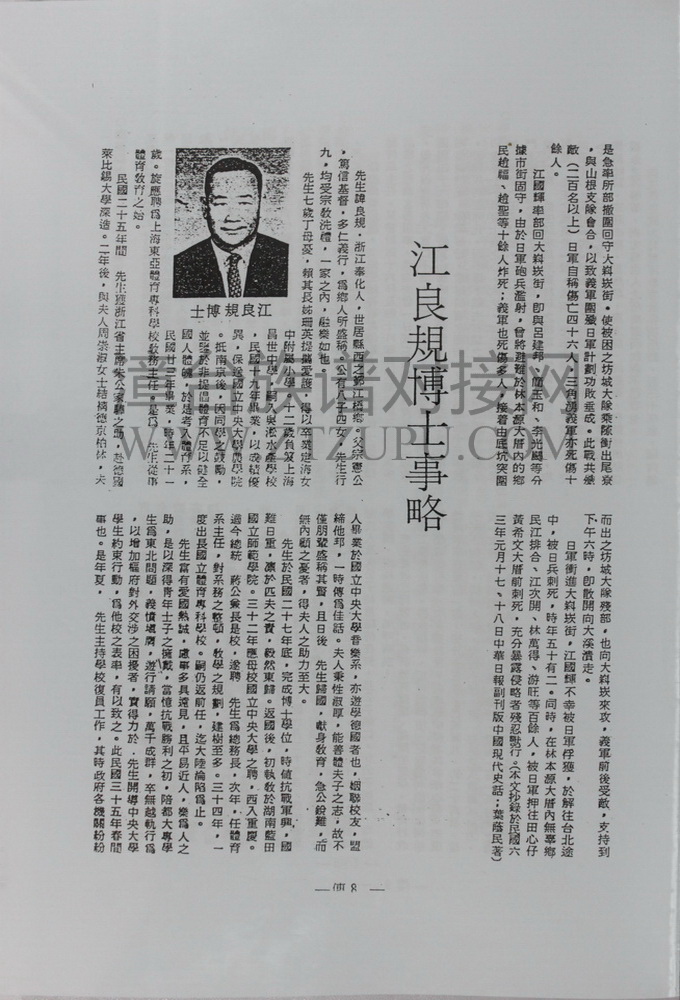 是急率所部撤圍回守大嵙崁街,使被困之坊城大隊乘隙衝出尾寮
,與山根支隊會合,以致義軍圍殲日軍計劃功敗垂成。此戰共殲
敵(二百名以上)日軍自稱傷亡四十六人,三角湧義軍亦死傷十
餘人。
江國輝率部回大嵙崁街,即與呂建邦、簡玉和、李光嗣等分
據市街固守,由於日軍砲兵濫射,曾將避難於林本源大厝內的鄉
民趙輻、趙聖等十餘人炸死;義軍也死傷多人,接着由底坑突圍
而出之坊城大隊殘部,也向大嵙崁來攻,義軍前後受敵,支持到
下午六時,即散開向大溪潰走。
日軍衝進大嵙崁街,江國輝不幸被日軍俘獲,於解往台北途
中,被日兵刺死,時年五十有二。同時,在林本源大厝內無辜鄉
民江排合、江次開、林萬得、游旺等百餘人,被日軍押往田心仔
黃希文大厝前刺死,充分暴露侵略者殘忍獸行。(本文抄錄於民國六
三年元月十七、十八日中華日報副刊版中國現代史話;葉蔭民著)
江良規博士事略
先生諱良規,浙江奉化人,世居縣西之鄞江橋鄉。父宗憲公
,篤信基督,多仁義行,為鄉人所盛稱。公有八子四女,先生行
九,均受宗教洗禮,一家之內,融樂如也。
先生七歲丁母憂,賴其長姊珊英提攜愛護,得以卒業定海女
中附屬小學。十二歲負笈上海
昌世中學,嗣入吳淞水產學校
,民國十九年畢業,以成績優
異,保送國立中央大學農學院
。抵南京後,因同學之鼓勵,
並鑒於非提倡體育不足以健全
國人體魄,於是考入體育系,
民國廿三年畢業,時年二十一
江良規博士
歲。旋應聘為上海東亞體育專科學校教務主任。是為 先生從事
體育教育之始。
民國二十五年間 先生獲浙江省主席朱公家驊之助,赴德國
萊比錫大學深造。二年後,與夫人周崇淑女士結褵德京柏林,夫
人畢業於國立中央大學音樂系,亦遊學德國者也,姻聯校友,盟
締他邦,一時傳為佳話。夫人秉性淑厚,能善體夫子之志,故不
僅朋輩盛稱其賢,且日後 先生歸國,獻身教育,急公銳難,而
無內顧之憂者,得夫人之助力至大。
先生於民國二十七年底,完成博士學位,時値抗戰軍興,國
難日重,凜於匹夫之責,毅然東歸。返國後,初執教於湖南藍田
國立師範學院。三十二年應母校國立中央大學之聘,西入重慶。
適今總統 蔣公兼長是校,遂聘 先生為總務長,次年,任體育
系主任,對系務之整頓,教學之規劃,建樹至多。三十四年,一
度出長國立體育專科學校。嗣仍返前任,迄大陸淪陷為止。
先生富有愛國熱誠,慮事多具遠見,且平易近人,樂為人之
助,是以深得青年士子之擁戴,當憶抗戰勝利之初,陪都大專學
生為東北問題,義憤填膺,遊行請願,萬千成群,卒無越軌行為
,以增加樞府對外交涉之困擾者,實得力於 先生開導中央大學
學生約束行動,為他校之表率,有以致之。此民國三十五年春間
事也。是年夏, 先生主持學校復員工作,其時政府各機關紛紛
—傳 8 —